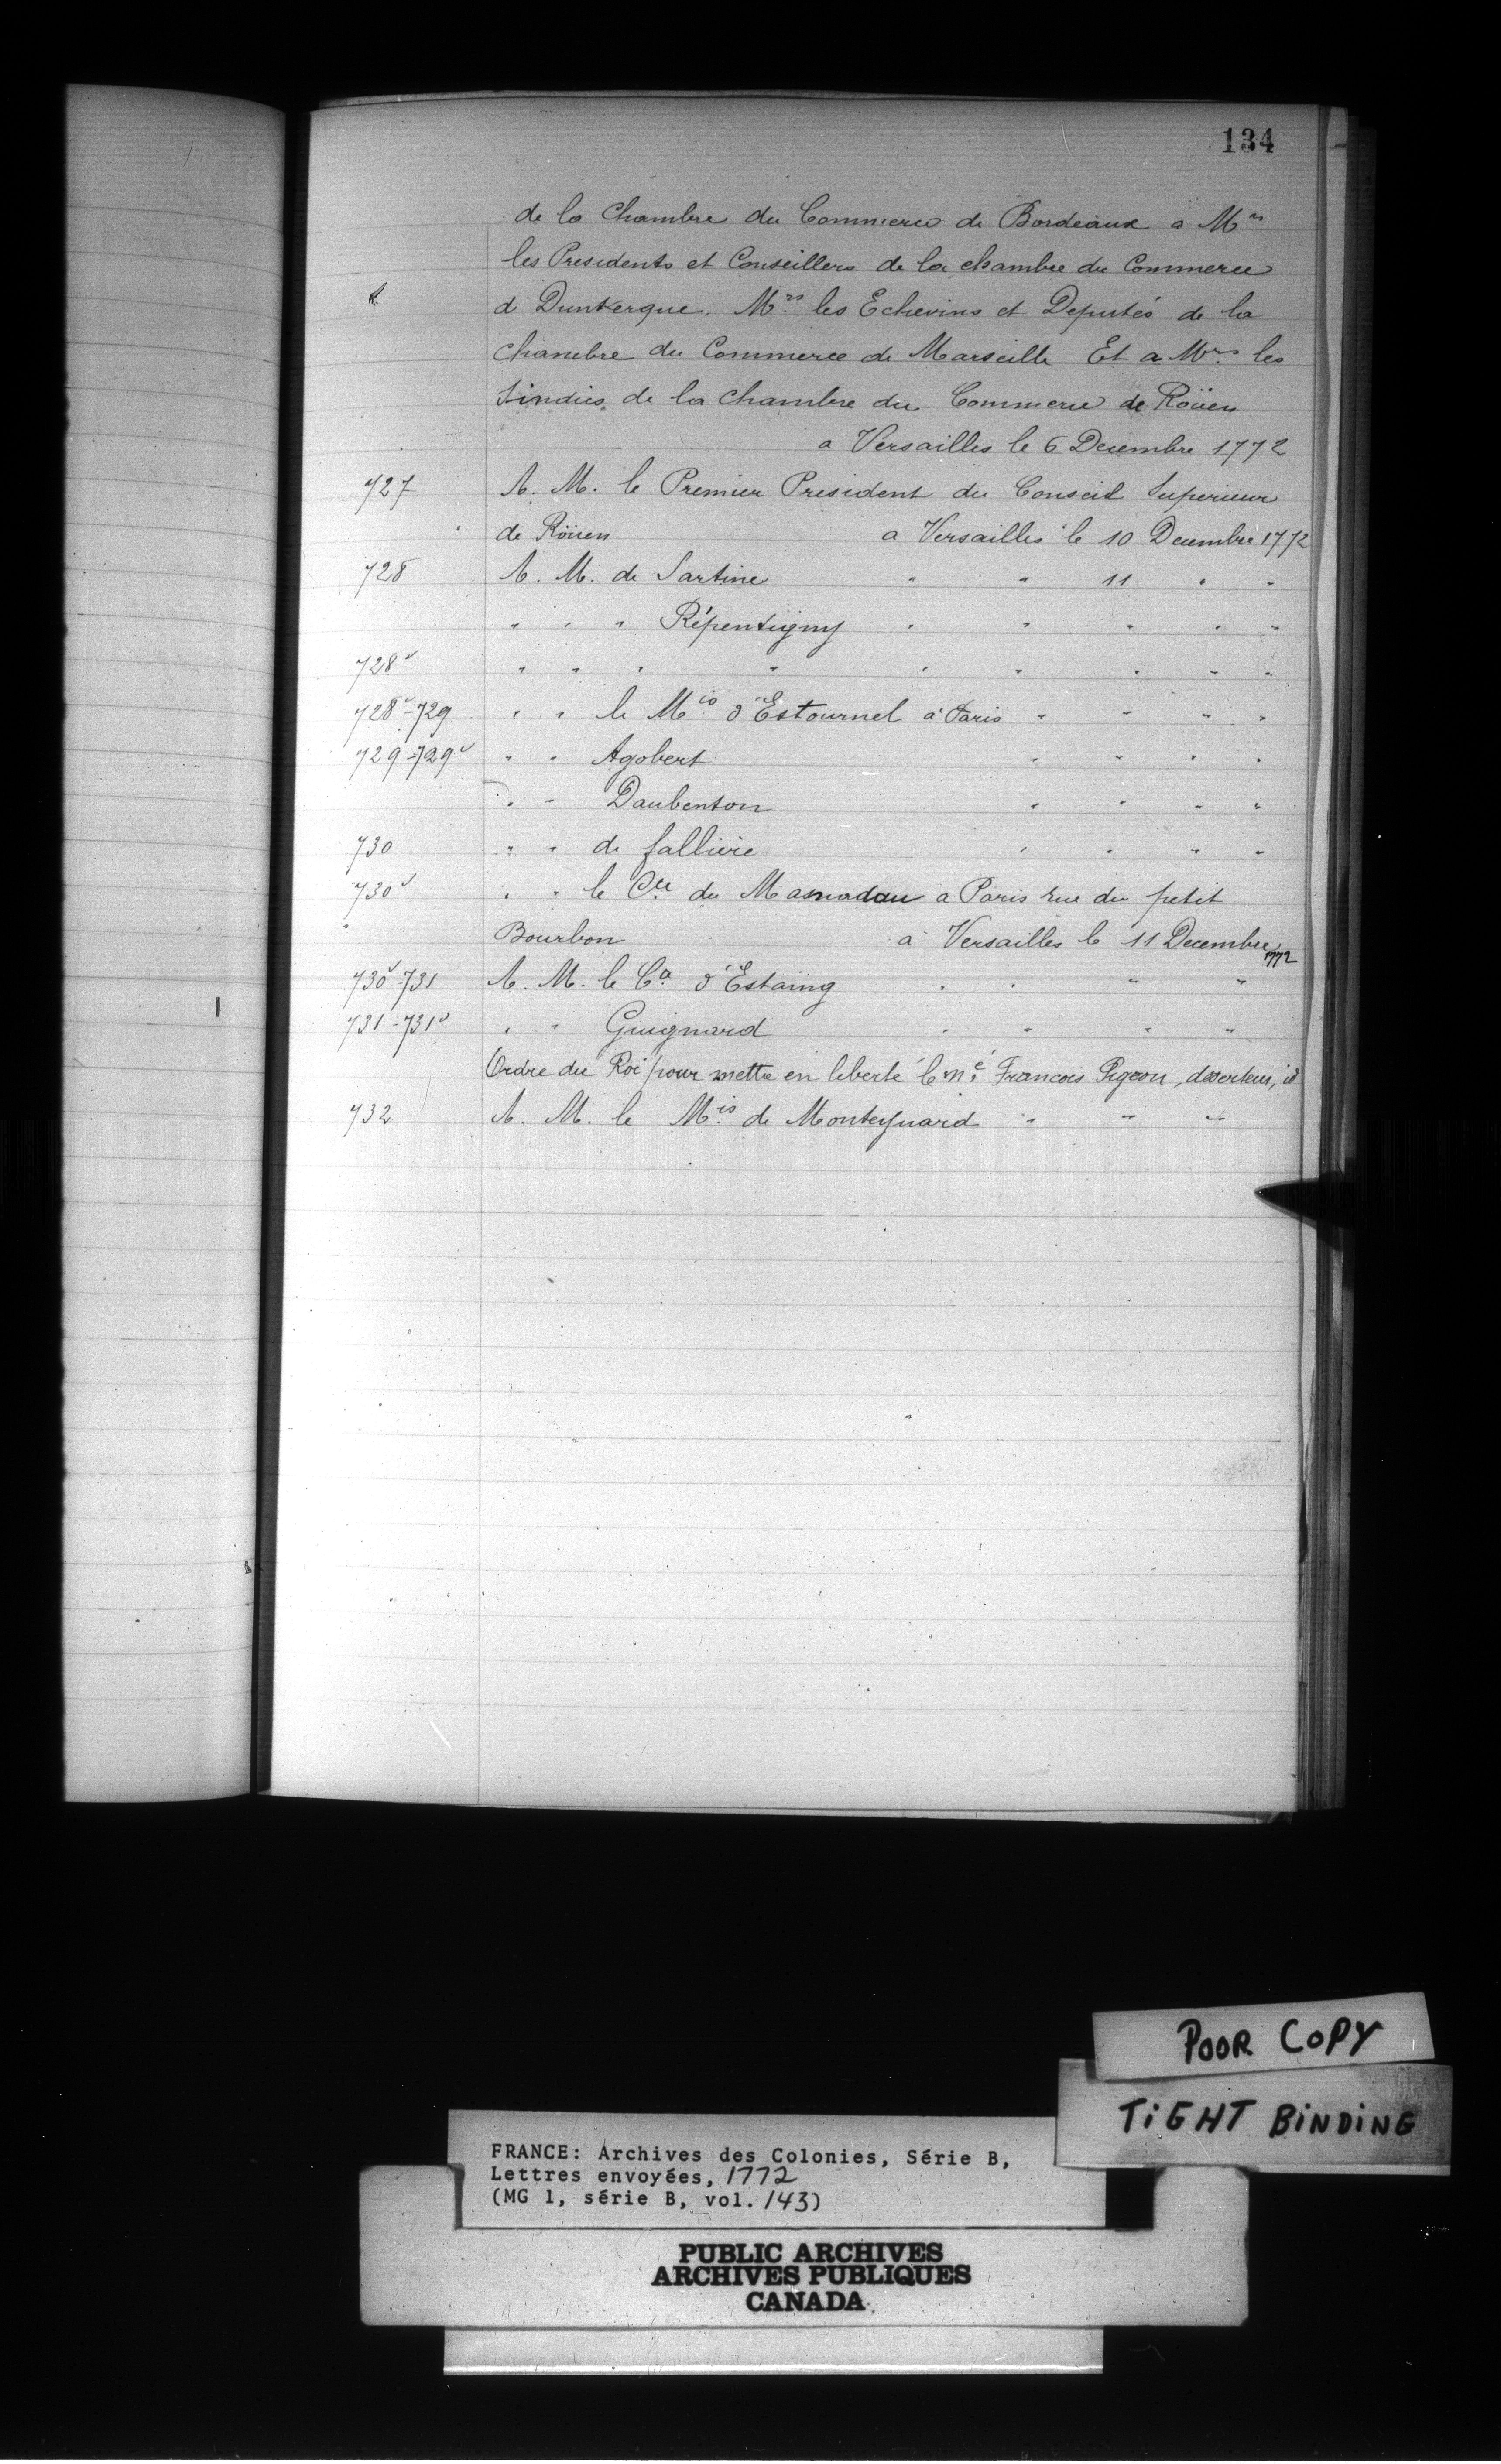 134
de la Chambre du Commerce de Bordeaux a Mrs
les Presidents et Conseillers de la chambre du Commerce
d Dunkerque. Mrs les Echevins et Deputés de la
Chambre du Commerce de Marseille Et a Mrs les
Sindics de la Chambre du Commerce de Roüen
a Versailles le 6 Decembre 1772
727 A. M. le Premier President du Conseil Superieur
de Roüen a Versailles le 10 Decembre 1772
728 A. M. de Sartine " " 11 " "
" " " Répentigny " " " " "
728v " " " " " " " " "
728v-729 " " le Mis d'Estournel à Paris " " " "
729-729v " " Agobert " " " "
" " Daubenton " " " "
730 " " de fallivie " " " "
730v " " le Cte du Masnadau a Paris rue du petit
Bourbon à Versailles le 11 Decembre 1772
730v-731 A. M. le Cte d'Estaing " " " "
731-731v " " Guignard " " " "
Ordre du Roi pour mettre en liberté le né Francois Pigeon, deserteur, id
732 A. M. le Mis de Monteynard " " "
POOR COPY
TIGHT BINDING
FRANCE: Archives des Colonies, Série B,
Lettres envoyées, 1772
(MG 1, série B, vol. 143)
PUBLIC ARCHIVES
ARCHIVES PUBLIQUES
CANADA